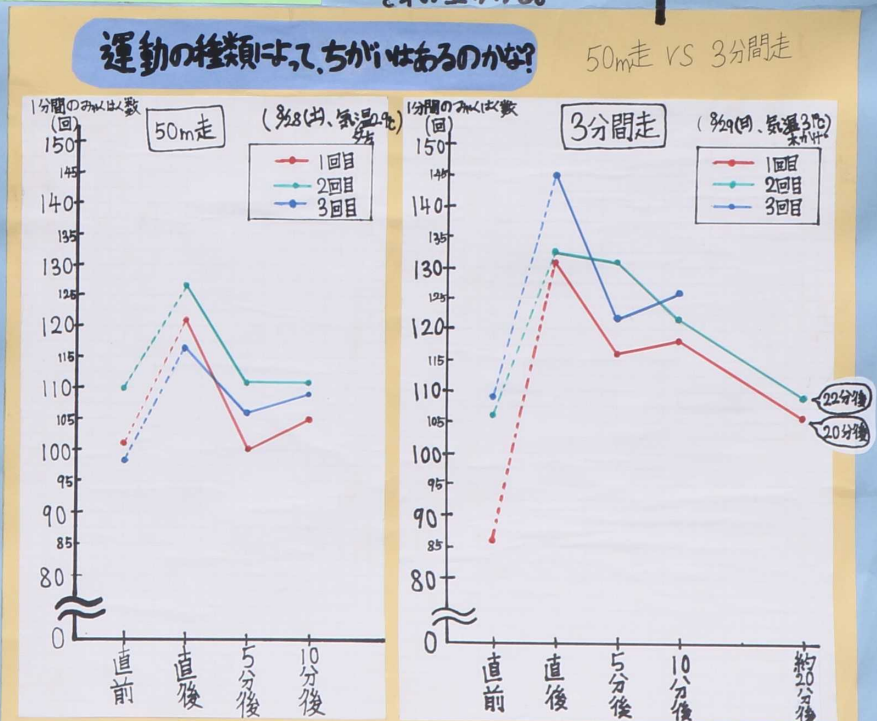 運動の種類によって、ちがいはあるのかな?
50m走 VS 3分間走
1分間のみゃくはく数
(回)
50m走
(8/28(土)、気温29℃)
1回目
2回目
3回目
150
145
140
135
130
125
120
115
110
105
100
95
90
85
80
0
直前
直後
5分後
10分後
1分間のみゃくはく数
(回)
3分間走
(8/29(日)、気温31℃)
1回目
2回目
3回目
150
145
140
135
130
125
120
115
110
105
100
95
90
85
80
0
22分後
20分後
直前
直後
5分後
10分後
約20分後